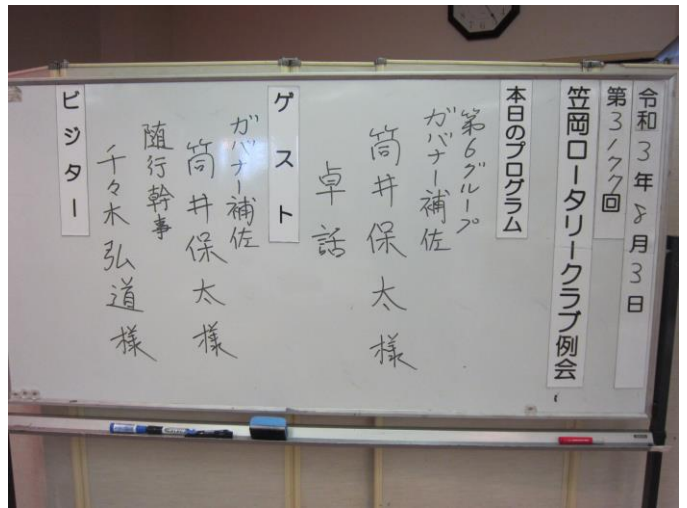 令和3年8月3日
第3177回
笠岡ロータリークラブ例会
本日のプログラム
第6グループ
ガバナー補佐
筒井保太様
卓話
ゲスト
ガバナー補佐
筒井保太様
随行幹事
千々木弘道様
ビジター